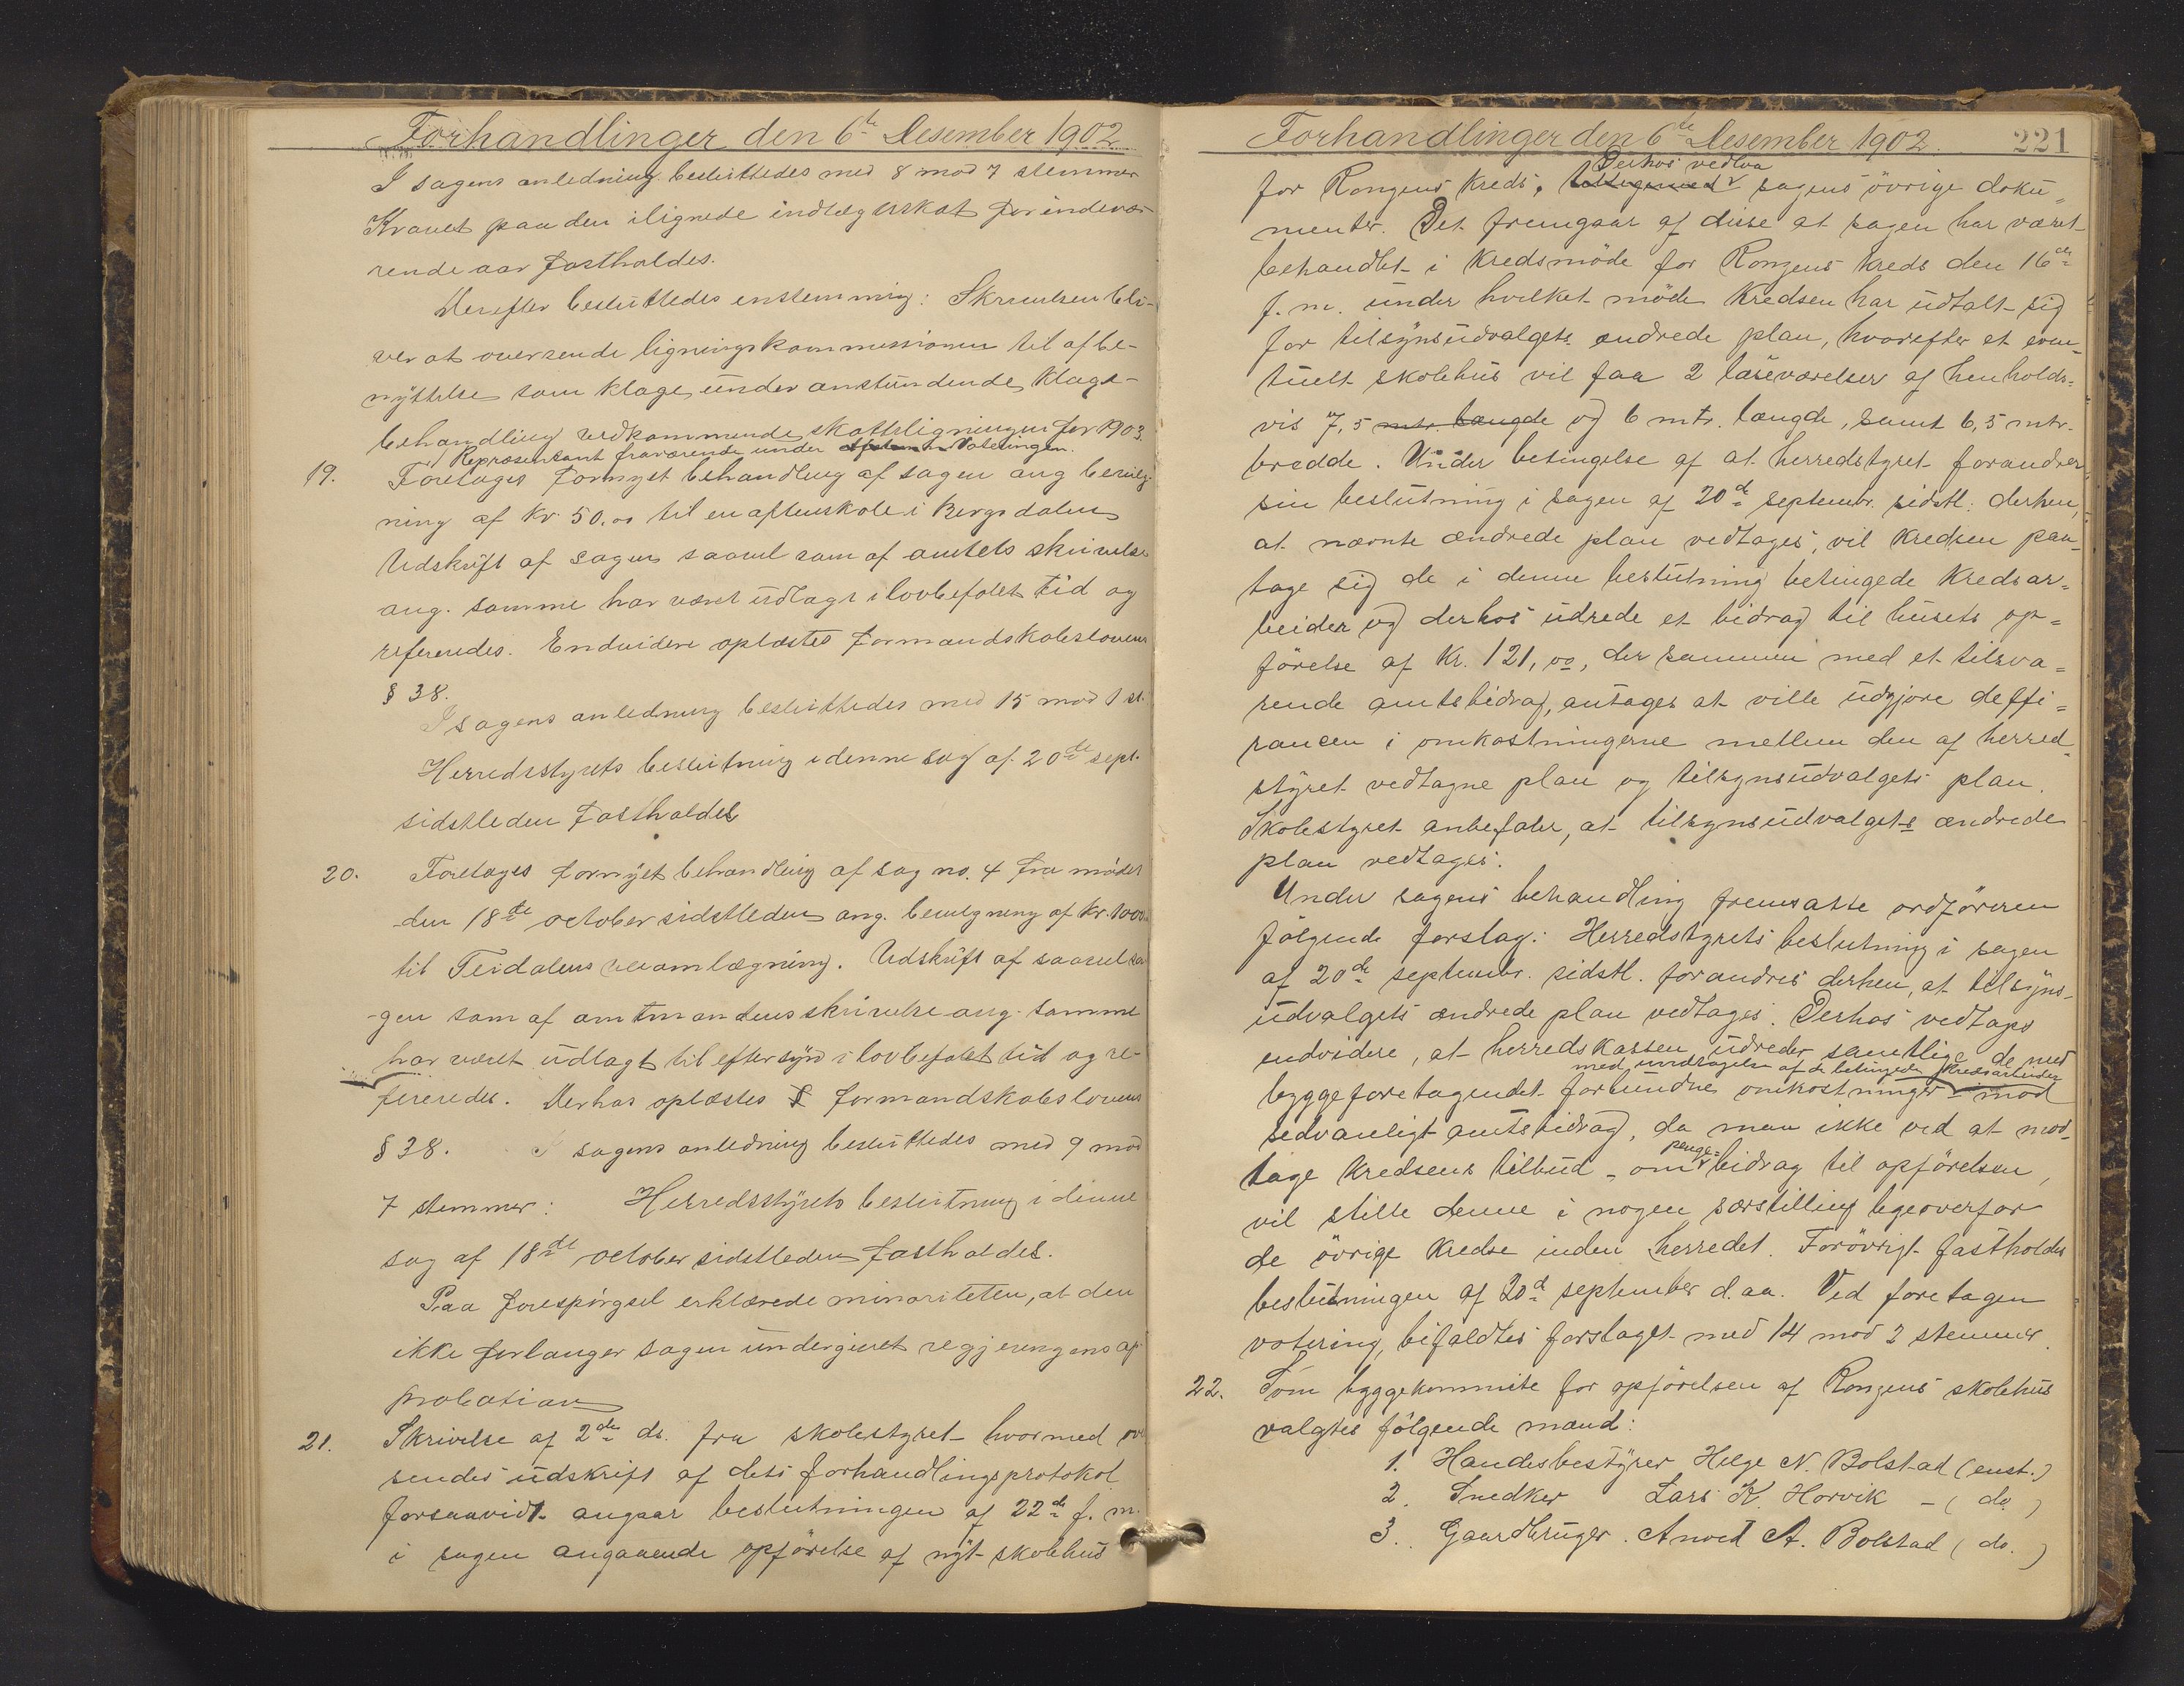 Forhandlinger den 6te Desember 1902
I sagens anledning besluttedes med 8 mod 7 stemmer
Kravet paa den ilignede indtægtsskat for indevæ-
rende aar fastholdes.
Derefter besluttedes enstemmig: Skrivelsen bli-
ver at oversende ligningskommissionen til afbe-
nyttelse som klage under anstundende klage-
behandling vedkommende skatteligningen for 1903.
1 Repræsentant fraværende under Voteringen.
19. Foretages fornyet behandling af sagen ang bevilg-
ning af Kr 50.00 til en aftenskole i Bergsdalen
Udskrift af sagen saavel som af amtets skrivelse
ang. samme har været udlagt i lovbefalet tid og
refereredes. Endvidere oplæstes formandskabslovens
§ 38.
I sagens anledning besluttedes med 15 mod 1 st.
Herredsstyrets beslutning i denne sag af 20de sept.
sidstleden fastholdes
20. Foretages fornyet behandling af sag no. 4 fra mødet
den 18de october sidstleden ang. bevilgning af Kr. 1000
til Teidalens veiomlægning. Udskrift af saavel sa-
gen som af amtmandens skrivelse ang. samme
har været udlagt til eftersyn i lovbefalet tid og re-
fereredes. Derhos oplæstes formandskabslovens
§ 38. I sagens anledning besluttedes med 9 mod
7 stemmer: Herredsstyrets beslutning i denne
sag af 18de october sidstleden fastholdes.
Paa forespörgsel erklærede minoriteten, at den
ikke forlanger sagen undergivet regjeringens ap-
probation
21. Skrivelse af 2de ds. fra skolestyret hvormed over
sendes udskrift af dets forhandlingsprotokol
forsaavidt angaar beslutningen af 22de f. m.
i sagen angaaende opförelse af nyt skolehus
Forhandlinger den 6te Desember 1902. 221
Derhos vedlaa
for Rongens Kreds, sagens övrige doku=
menter. Det fremgaar af disse at sagen har været
behandlet i Kredsmöde for Rongens Kreds den 16de
f. m. under hvilket möde Kredsen har udtalt sig
for tilsynsudvalgets ændrede plan, hvorefter et even=
tuelt skolehus vil faa 2 læseværelser af henholds=
vis 7,5 mtr. længde og 6 mtr. længde, samt 6,5 mtr.
bredde. Under betingelse af at herredstyret forandrer
sin beslutning i sagen af 20de septembr. sidstl. derhen,
at nævnte ændrede plan vedtages, vil Kredsen paa=
tage sig de i denne beslutning betingede Kredsar=
beider og derhos udrede et bidrag til husets op=
förelse af Kr. 121,00, der sammen med et tilsva=
rende amtsbidrag, antages at ville udgjøre deffi=
rancen i omkostningerne mellem den af herred=
styret vedtagne plan og tilsynsudvalgets plan.
Skolestyret anbefaler, at tilsynsudvalgets ændrede
plan vedtages.
Under sagens behandling fremsatte ordföreren
fölgende forslag: Herredstyrets beslutning i sagen
af 20de septembr. sidstl. forandres derhen, at tilsyns-
udvalgets ændrede plan vedtages. Derhos vedtages
endvidere, at herredskassen udreder samtlige de med
med undtagelse af de betingede Kredsarbeider
byggeforetagendet forbundne omkostninger - mod
sedvanligt amtsbidrag, da man ikke ved at mod=
tage Kredsens tilbud - om penge=bidrag til opförelsen,
vil stille denne i nogen særstilling ligeoverfor
de övrige Kredse inden herredet. Forövrigt fastholdes
beslutningen af 20de september d. aa. Ved foretagen
votering, bifaldtes forslaget med 14 mod 2 stemmer.
22. Som byggekommite for opförelsen af Rongens skolehus
valgtes fölgende mænd:
1. Handelsbestyrer Helge N. Bolstad (enst.)
2. Snedker Lars K. Horvik - ( do )
3. Gaardbruger. Anved A. Bolstad ( do. )